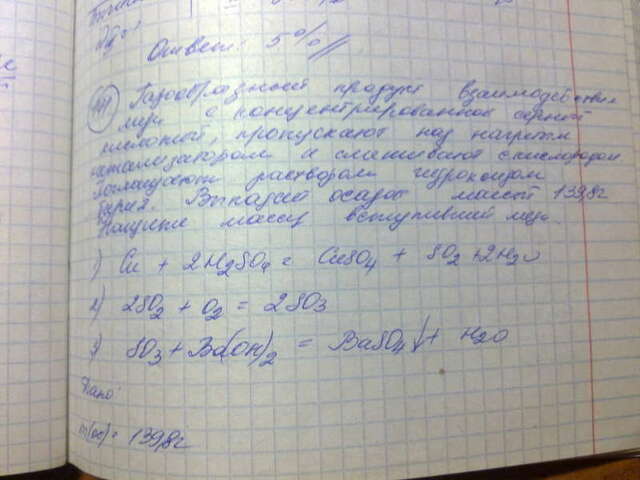 Ответ: 5%
Газообразный продукт взаимодействия
меди с концентрированной серной
кислотой, пропускают над нагретым
катализатором и смешивают с кислородом
поглощают раствором гидроксидом
бария. Выпадает осадок массой 139,8г
Найдите массу вступившей меди.
1) Cu + 2H2SO4 = CuSO4 + SO2 + 2H2O
2) 2SO2 + O2 = 2SO3
3) SO3 + Ba(OH)2 = BaSO4↓ + H2O
Дано:
m(ос)= 139,8г